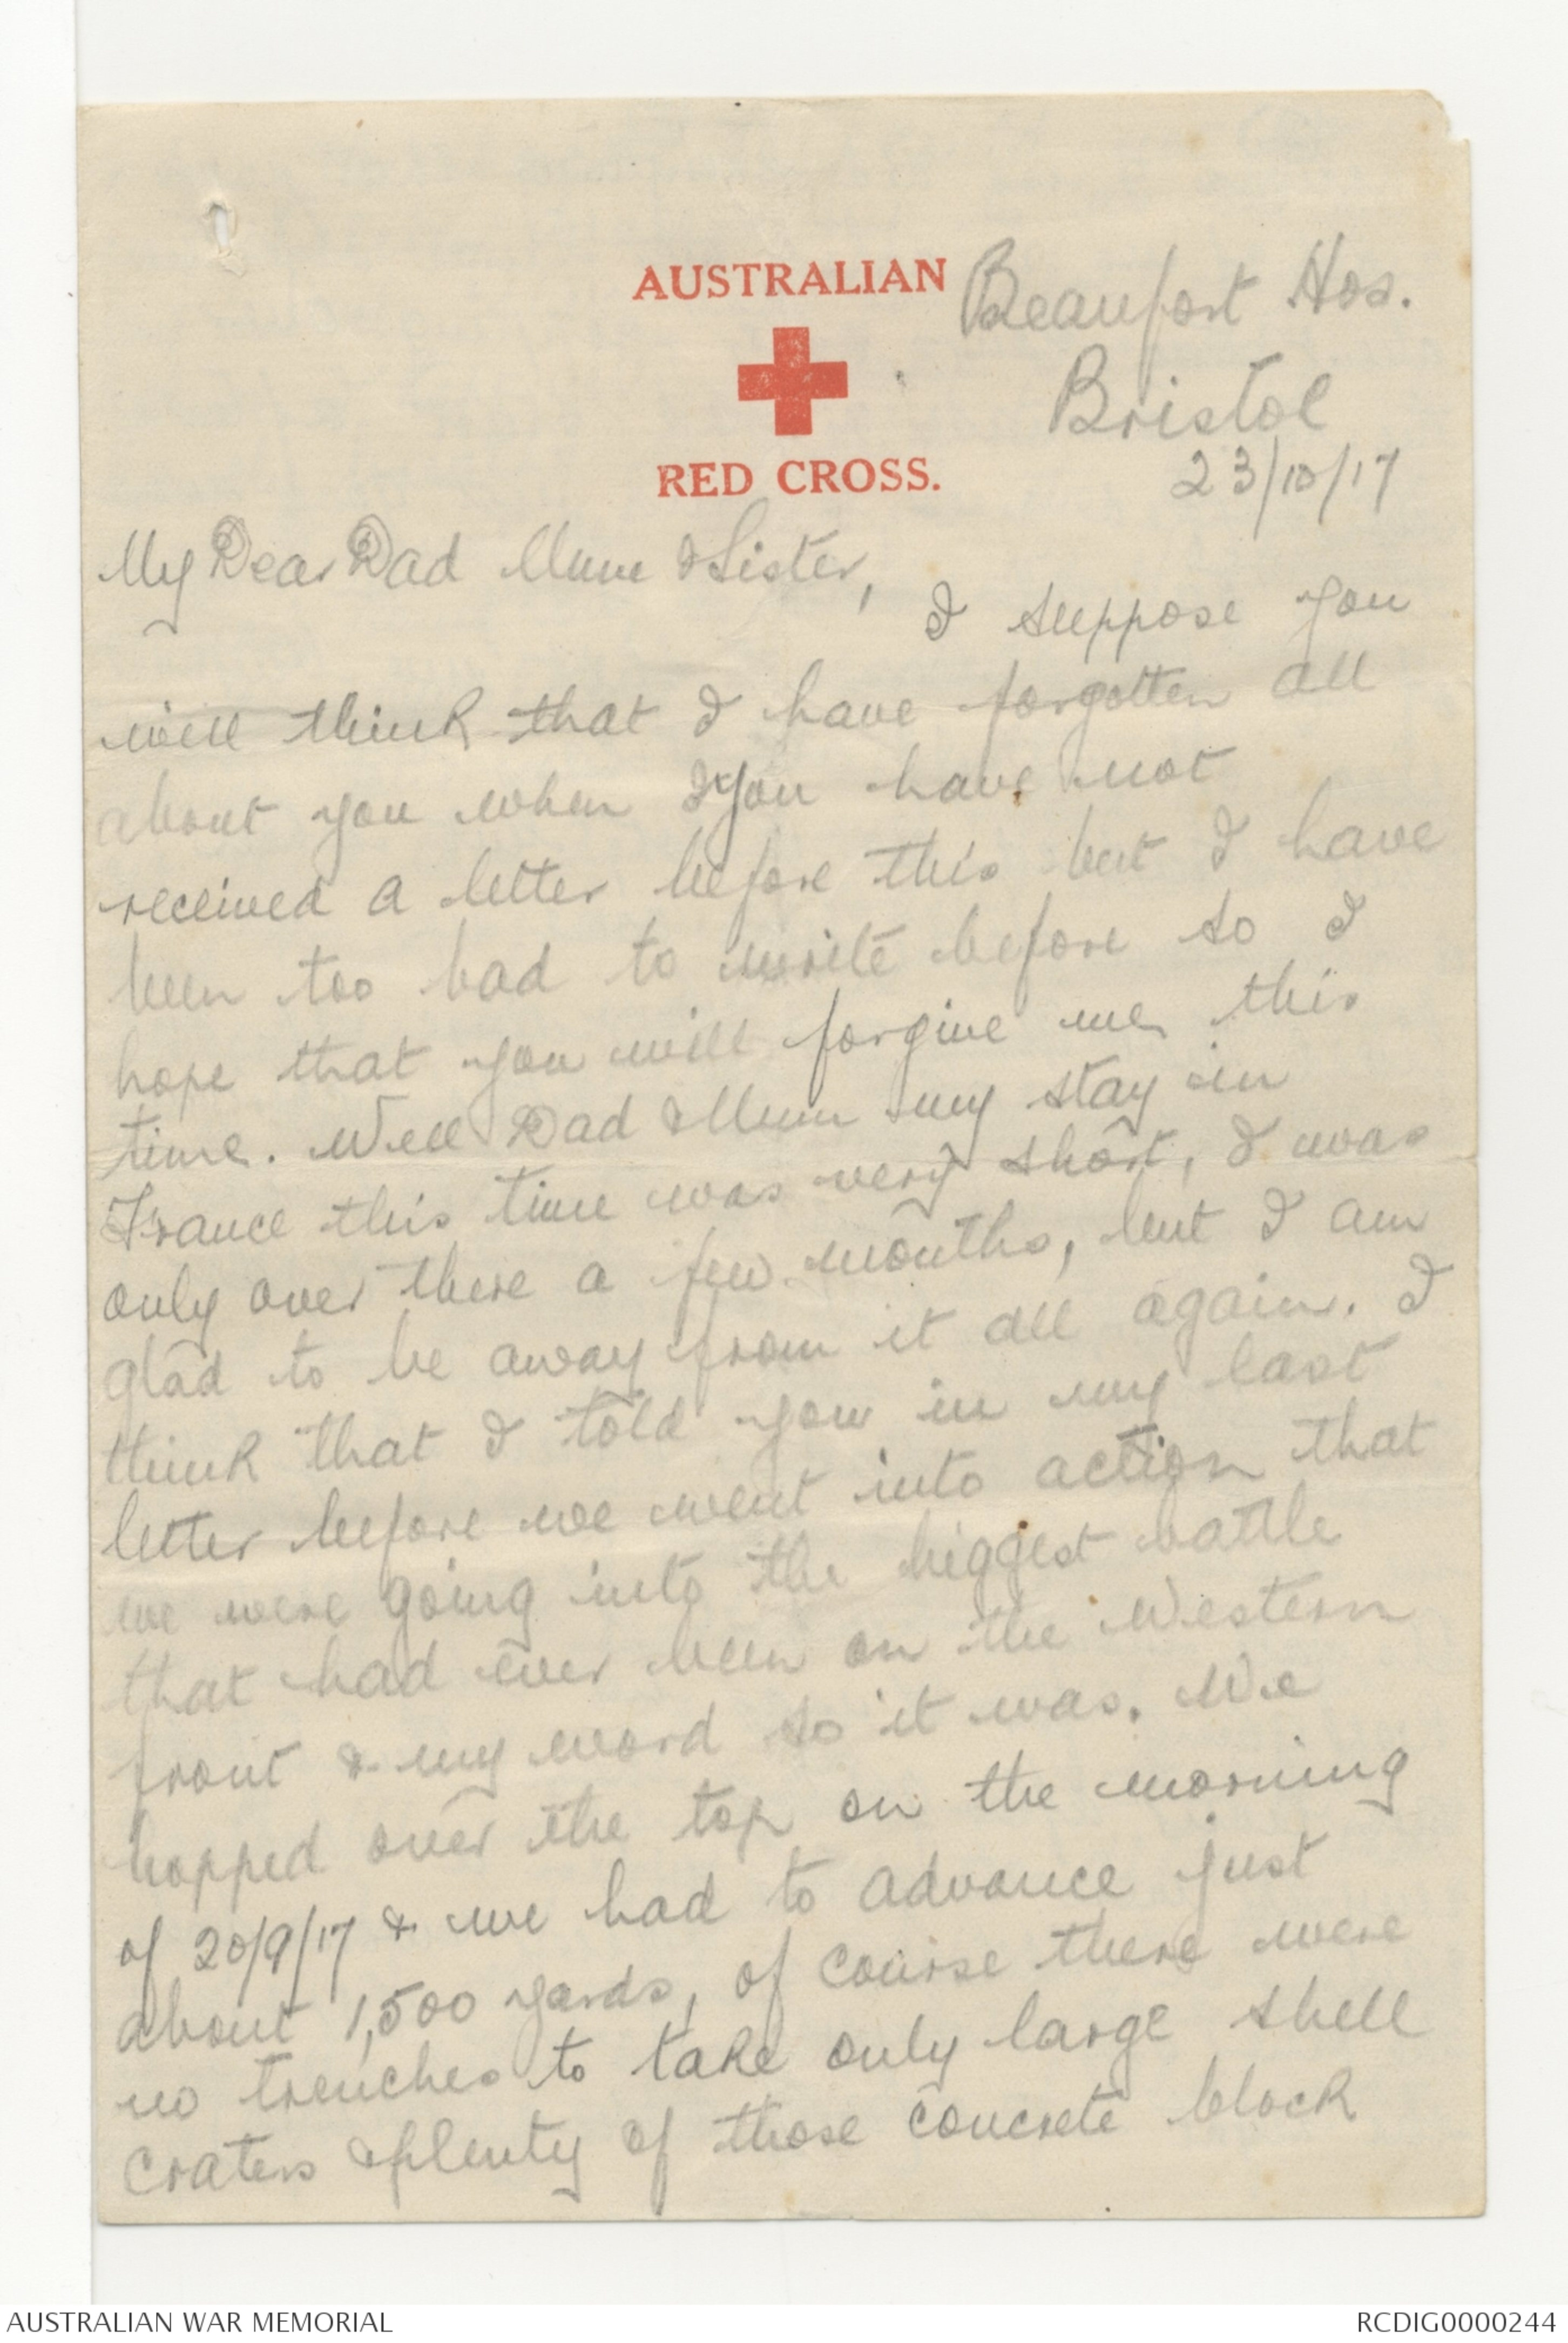 AUSTRALIAN
RED CROSS.
Beaufort Hos.
Bristol
23/10/17
My Dear Dad Mum & Sister,
I suppose you
will think that I have forgotten all
about you when you have not
received a letter before this but I have
been too bad to write before so I
hope that you will forgive me this
time. Well Dad & Mum my stay in
France this time was very short, I was
only over there a few months, but I am
glad to be away from it all again. I
think that I told you in my last
letter before we went into action that
we were going into the biggest battle
that had ever been on the Western
front & my word so it was. We
hopped over the top on the morning
of 20/9/17 & we had to advance just
about 1,500 yards, of course there were
no trenches to take only large shell
craters & plenty of those concrete block
AUSTRALIAN WAR MEMORIAL
RCDIG0000244